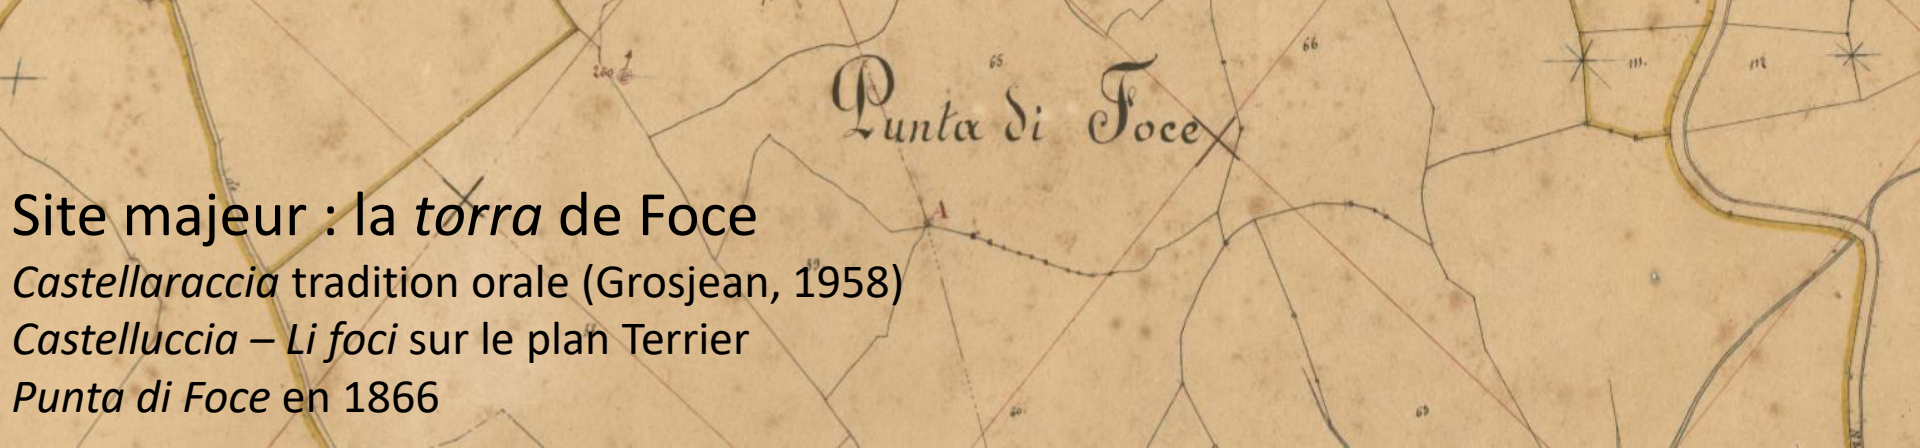 65
66
111.
112
260
Punta di Foce
A
Site majeur : la torra de Foce
Castellaraccia tradition orale (Grosjean, 1958)
Castelluccia – Li foci sur le plan Terrier
Punta di Foce en 1866
60.
63